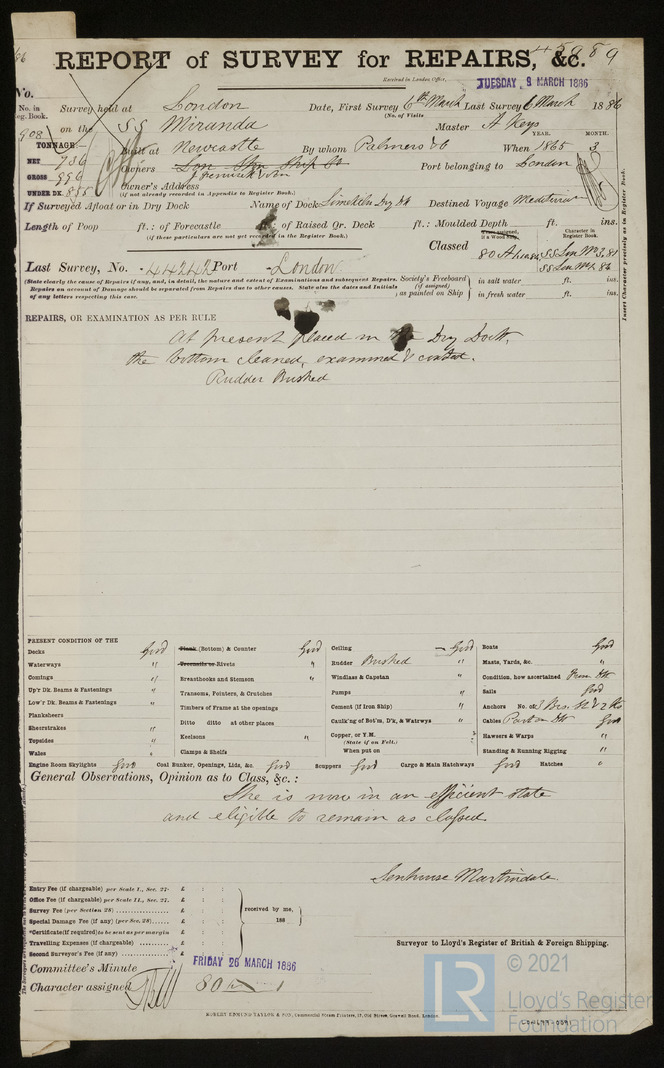 45989
REPORT of SURVEY for REPAIRS, &c.
Received in London Office,
TUESDAY, 9 MARCH 1886
No.
No. in
Reg. Book.
Survey held at London
Date, First Survey 6th March Last Survey 6 March 1886
(No. of Visits
908 on the SS Miranda
Master A Keys
TONNAGE:—
YEAR. MONTH.
Built at Newcastle By whom Palmers & Co When 1865 3
NET 736
Owners
Port belonging to London
GROSS
Owner's Address
UNDER DK. 885
(if not already recorded in Appendix to Register Book.)
If Surveyed Afloat or in Dry Dock Name of Dock Limekiln Dry Dk Destined Voyage
Length of Poop ft.: of Forecastle of Raised Qr. Deck ft.: Moulded Depth ft. ins.
(if these particulars are not yet recorded in the Register Book.)
Character in
Register Book.
Insert Character precisely as in Register Book.
Classed 80 A
Last Survey, No. 44242 Port London
(State clearly the cause of Repairs if any, and, in detail, the nature and extent of Examinations and subsequent Repairs.
Repairs on account of Damage should be separated from Repairs due to other causes. State also the dates and Initials
of any letters respecting this case.
Society's Freeboard
(if assigned)
, as painted on Ship
in salt water ft. ins.
in fresh water ft. ins.
REPAIRS, OR EXAMINATION AS PER RULE
At present placed in the Dry Dock,
the bottom cleaned, examined & coated.
Rudder Bushed
PRESENT CONDITION OF THE
Decks Good
Waterways "
Comings "
Up'r Dk. Beams & Fastenings "
Low'r Dk. Beams & Fastenings "
Planksheers
Sheerstrakes "
Topsides "
Wales "
Plank (Bottom) & Counter Good
Treenails or Rivets "
Breasthooks and Stemson "
Transoms, Pointers, & Crutches
Timbers of Frame at the openings
Ditto ditto at other places
Keelsons "
Clamps & Shelfs
Ceiling Good
Rudder Bushed "
Windlass & Capstan "
Pumps "
Cement (if Iron Ship) "
Caulk'ng of Bot'm, D'k, & Watrwys "
Copper, or Y.M.
(State if on Felt.)
When put on
Boats Good
Masts, Yards, &c. "
Condition, how ascertained From Dk
Sails Good
Anchors No. of
Cables Part on Dk Good
Hawsers & Warps "
Standing & Running Rigging "
Engine Room Skylights Good Coal Bunker, Openings, Lids, &c. Good Scuppers Good Cargo & Main Hatchways Good Hatches "
General Observations, Opinion as to Class, &c.:
She is now in an efficient state
and eligible to remain as classed.
Senhouse Martindale
Entry Fee (if chargeable) per Scale I., Sec. 27. £ : :
Office Fee (if chargeable) per Scale II., Sec. 27. £ : :
Survey Fee (per Section 28) £ : :
Special Damage Fee (if any) (per Sec. 28) £ : :
*Certificate (if required) to be sent as per margin £ : :
Travelling Expenses (if chargeable) £ : :
Second Surveyor's Fee (if any) £ : :
received by me,
188
Surveyor to Lloyd's Register of British & Foreign Shipping.
Committee's Minute
FRIDAY 26 MARCH 1886
Character assigned 80
ROBERT EDMUND TAYLOR & SON, Commercial Steam Printers, 17, Old Street, Goswell Road, London.
LR
© 2021
Lloyd's Register
Foundation